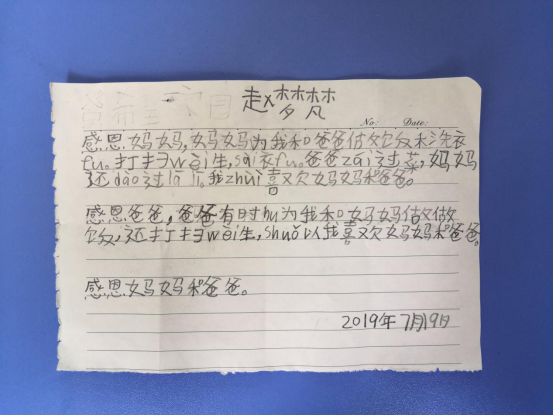 赵梦梦
No: Date:
感恩妈妈，妈妈为我和爸爸做饭和洗衣
fu。打扫wèi生，sài衣fu。爸爸zāi过菜，妈妈
还dào过lā jī。我zhuì喜欢妈妈和爸爸。
感恩爸爸，爸爸有时hu为我和妈妈做做
饭，还打扫wèi生，shuǒ以我喜欢妈妈和爸爸。
感恩妈妈和爸爸。
2019年7月19日